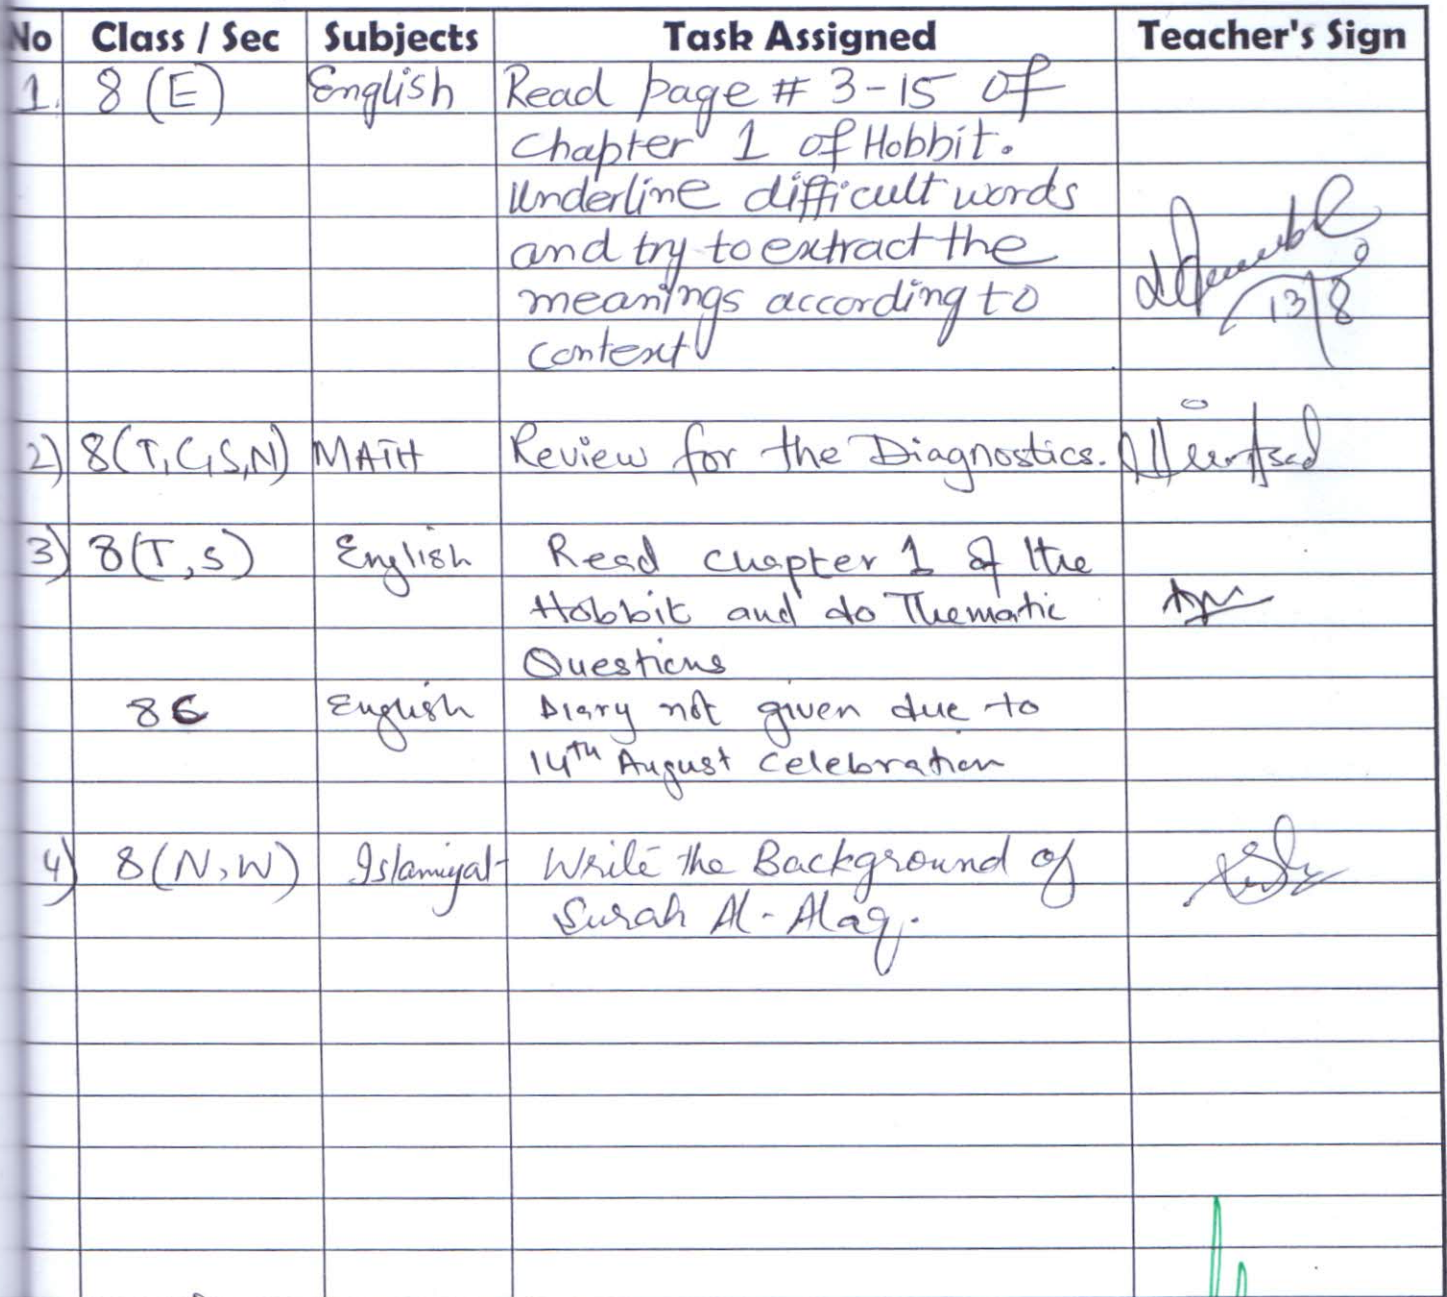 No Class / Sec Subjects Task Assigned Teacher's Sign
1. 8 (E) English Read page # 3-15 of
chapter 1 of Hobbit.
Underline difficult words
and try to extract the
meanings according to
context
13/8
2) 8(T,G,S,N) MATH Review for the Diagnostics.
3) 8(T,S) English Read chapter 1 of the
Hobbit and do Thematic
Questions
8 English Diary not given due to
14th August celebration
4) 8(N,W) Islamiyat Write the Background of
Surah Al-Alaq.